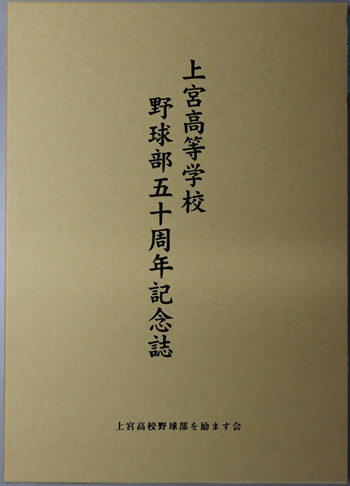 上宮高等学校
野球部五十周年記念誌
上宮高校野球部を励ます会